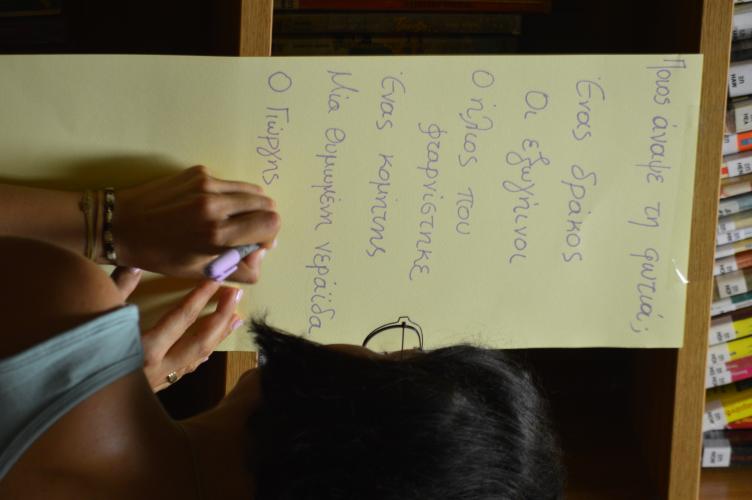 Ποιος άναψε τη φωτιά;
Ένας δράκος
Οι εξωγήινοι
Ο ήλιος που
φταρνίστηκε
Ένας κομήτης
Μία θυμωμένη νεράιδα
Ο Γιώργης